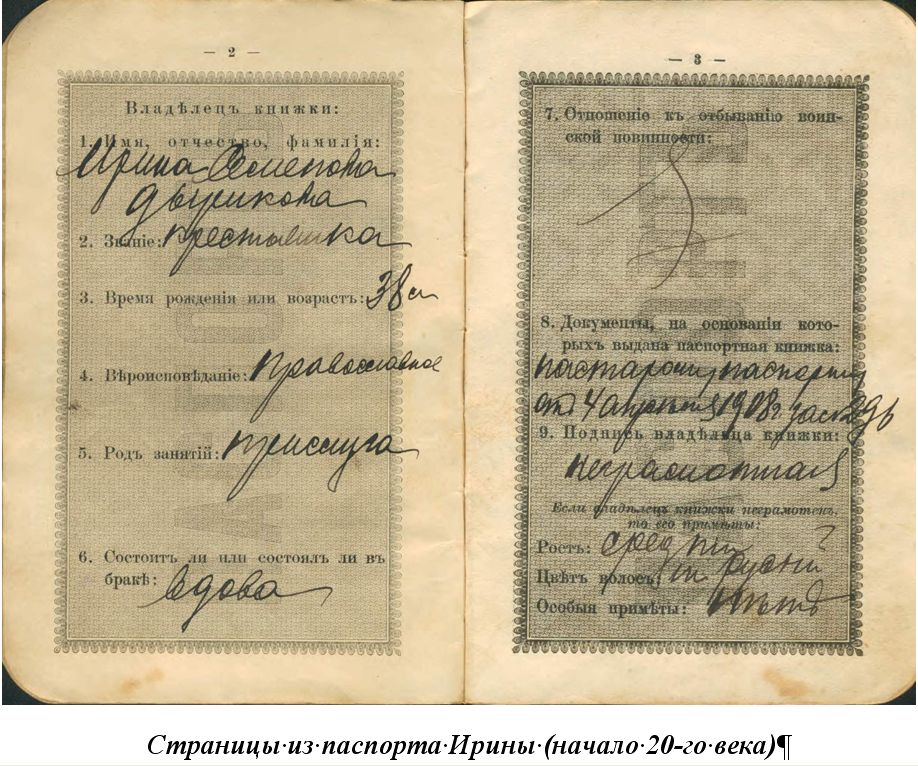 — 2 —
Владѣлецъ книжки:
1. Имя, отчество, фамилія:
Ирина Семенова
Дырикова
2. Званіе: крестьянка
3. Время рожденія или возрастъ: 38 л
4. Вѣроисповѣданіе: православное
5. Родъ занятій: прислуга
6. Состоитъ ли или состоялъ ли въ
бракѣ: вдова
— 3 —
7. Отношеніе къ отбыванію воин-
ской повинности:
8. Документы, на основаніи кото-
рыхъ выдана паспортная книжка:
по старому паспорту
от 4 апреля 1908 г за №
9. Подпись владѣльца книжки:
неграмотная
Если владѣлецъ книжки неграмотенъ,
то его примѣты:
Ростъ: средній
Цвѣтъ волосъ: русый
Особыя примѣты: нѣтъ
Страницы·из·паспорта·Ирины·(начало·20-го·века)¶